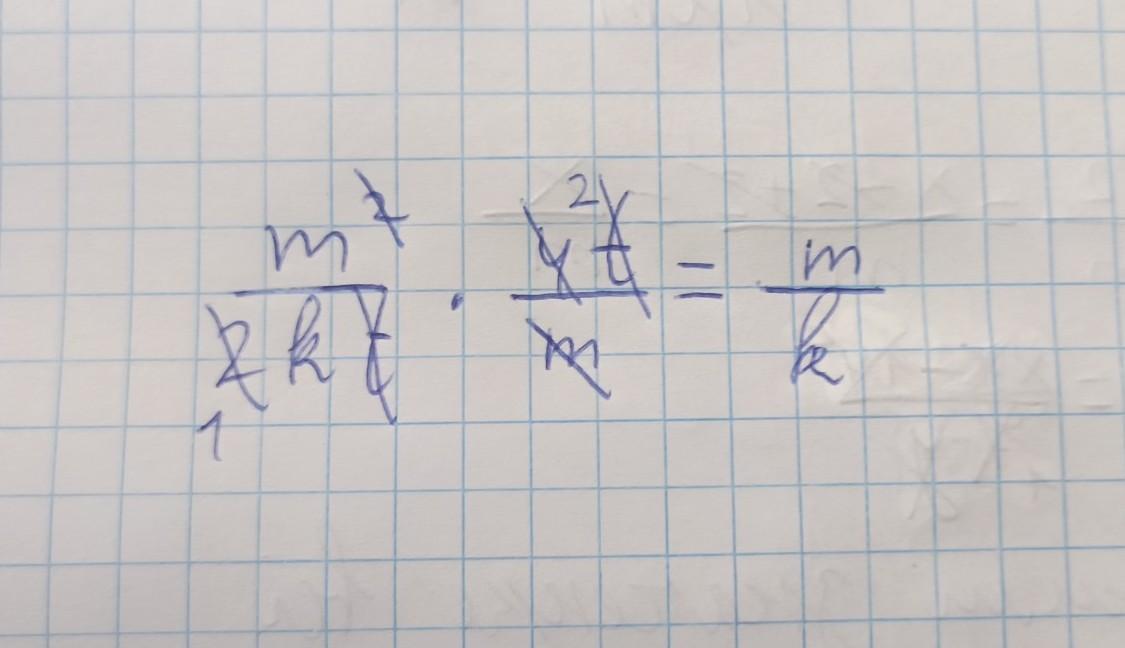 m² / 2kt · 4t / m = m / k
2
1